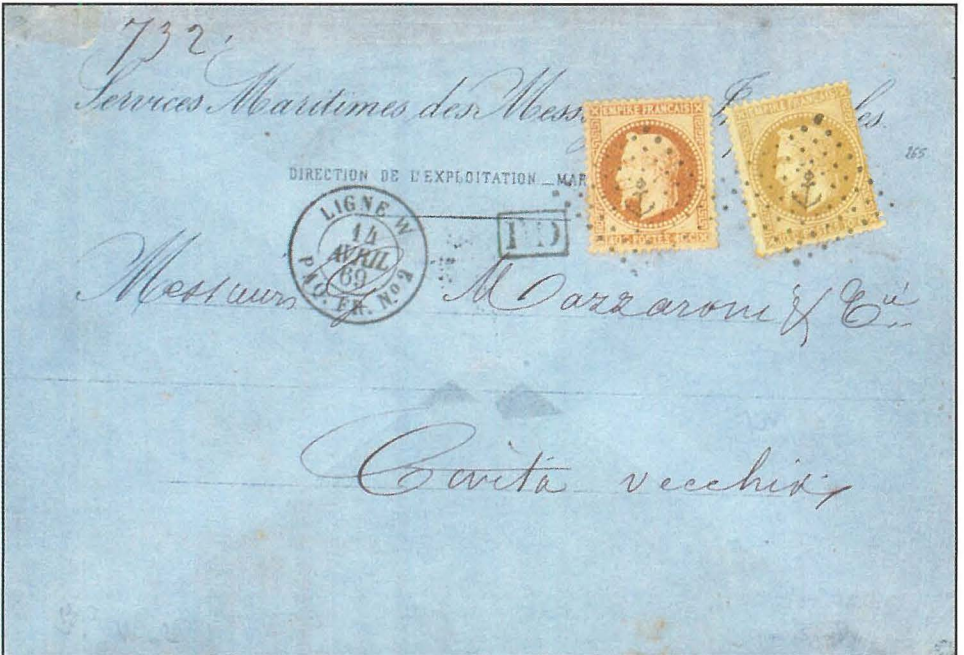 732.
Services Maritimes des Mess les.
EMPIRE FRANCAIS
EMPIRE FRANCAIS
265
DIRECTION DE L'EXPLOITATION MAR
LIGNE W
14
AVRIL
69
PAQ. FR. No 2
PD
POSTES
Messieurs Mazzaroni & Cie
Civita vecchia